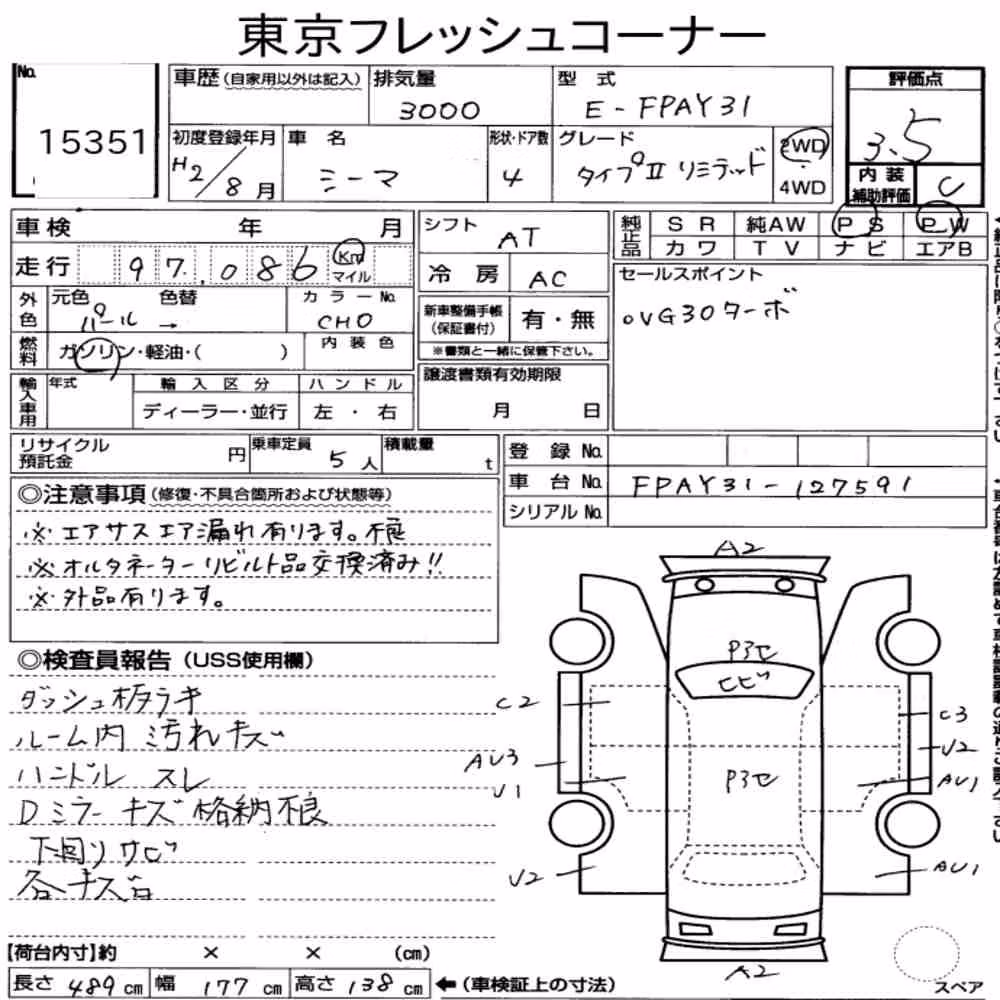 東京フレッシュコーナー
No.
15351
車歴(自家用以外は記入)
排気量
3000
型 式
E-FPAY31
評価点
3.5
初度登録年月
H2/8月
車 名
シーマ
形状・ドア数
4
グレード
タイプII リミテッド
2WD
4WD
内装
補助評価
C
車検 年 月
シフト
AT
純正品
S R 純AW P S P W
カワ T V ナビ エアB
走行 97,086 Km
マイル
冷房
AC
セールスポイント
○VG30ターボ
外色
元色
パール →
色替
カラーNo.
CH0
新車整備手帳
(保証書付)
有・無
※書類と一緒に保管下さい。
燃料
ガソリン・軽油・( )
内装色
輸入車用
年式
輸入区分
ハンドル
ディーラー・並行
左・右
譲渡書類有効期限
月 日
リサイクル
預託金
円
乗車定員
5人
積載量
t
登録 No.
車台 No.
FPAY31-127591
シリアル No.
◎注意事項(修復・不具合箇所および状態等)
※エアサスエア漏れ有ります。不良
※オルタネーターリビルト品交換済み!!
※外品有ります。
◎検査員報告(USS使用欄)
ルーム内 汚れキズ
ハンドル スレ
Dミラーキズ 格納不良
下回りサビ
A2
P3セ
ヒビ
C2
C3
U2
AU3
U1
P3セ
AU1
U2
AU1
A2
スペア
【荷台内寸】約 × × (cm)
長さ 489 cm 幅 177 cm 高さ 138 cm ←(車検証上の寸法)